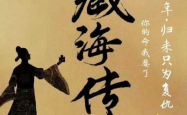 年，归来只为复仇
你的命我要了
藏海传